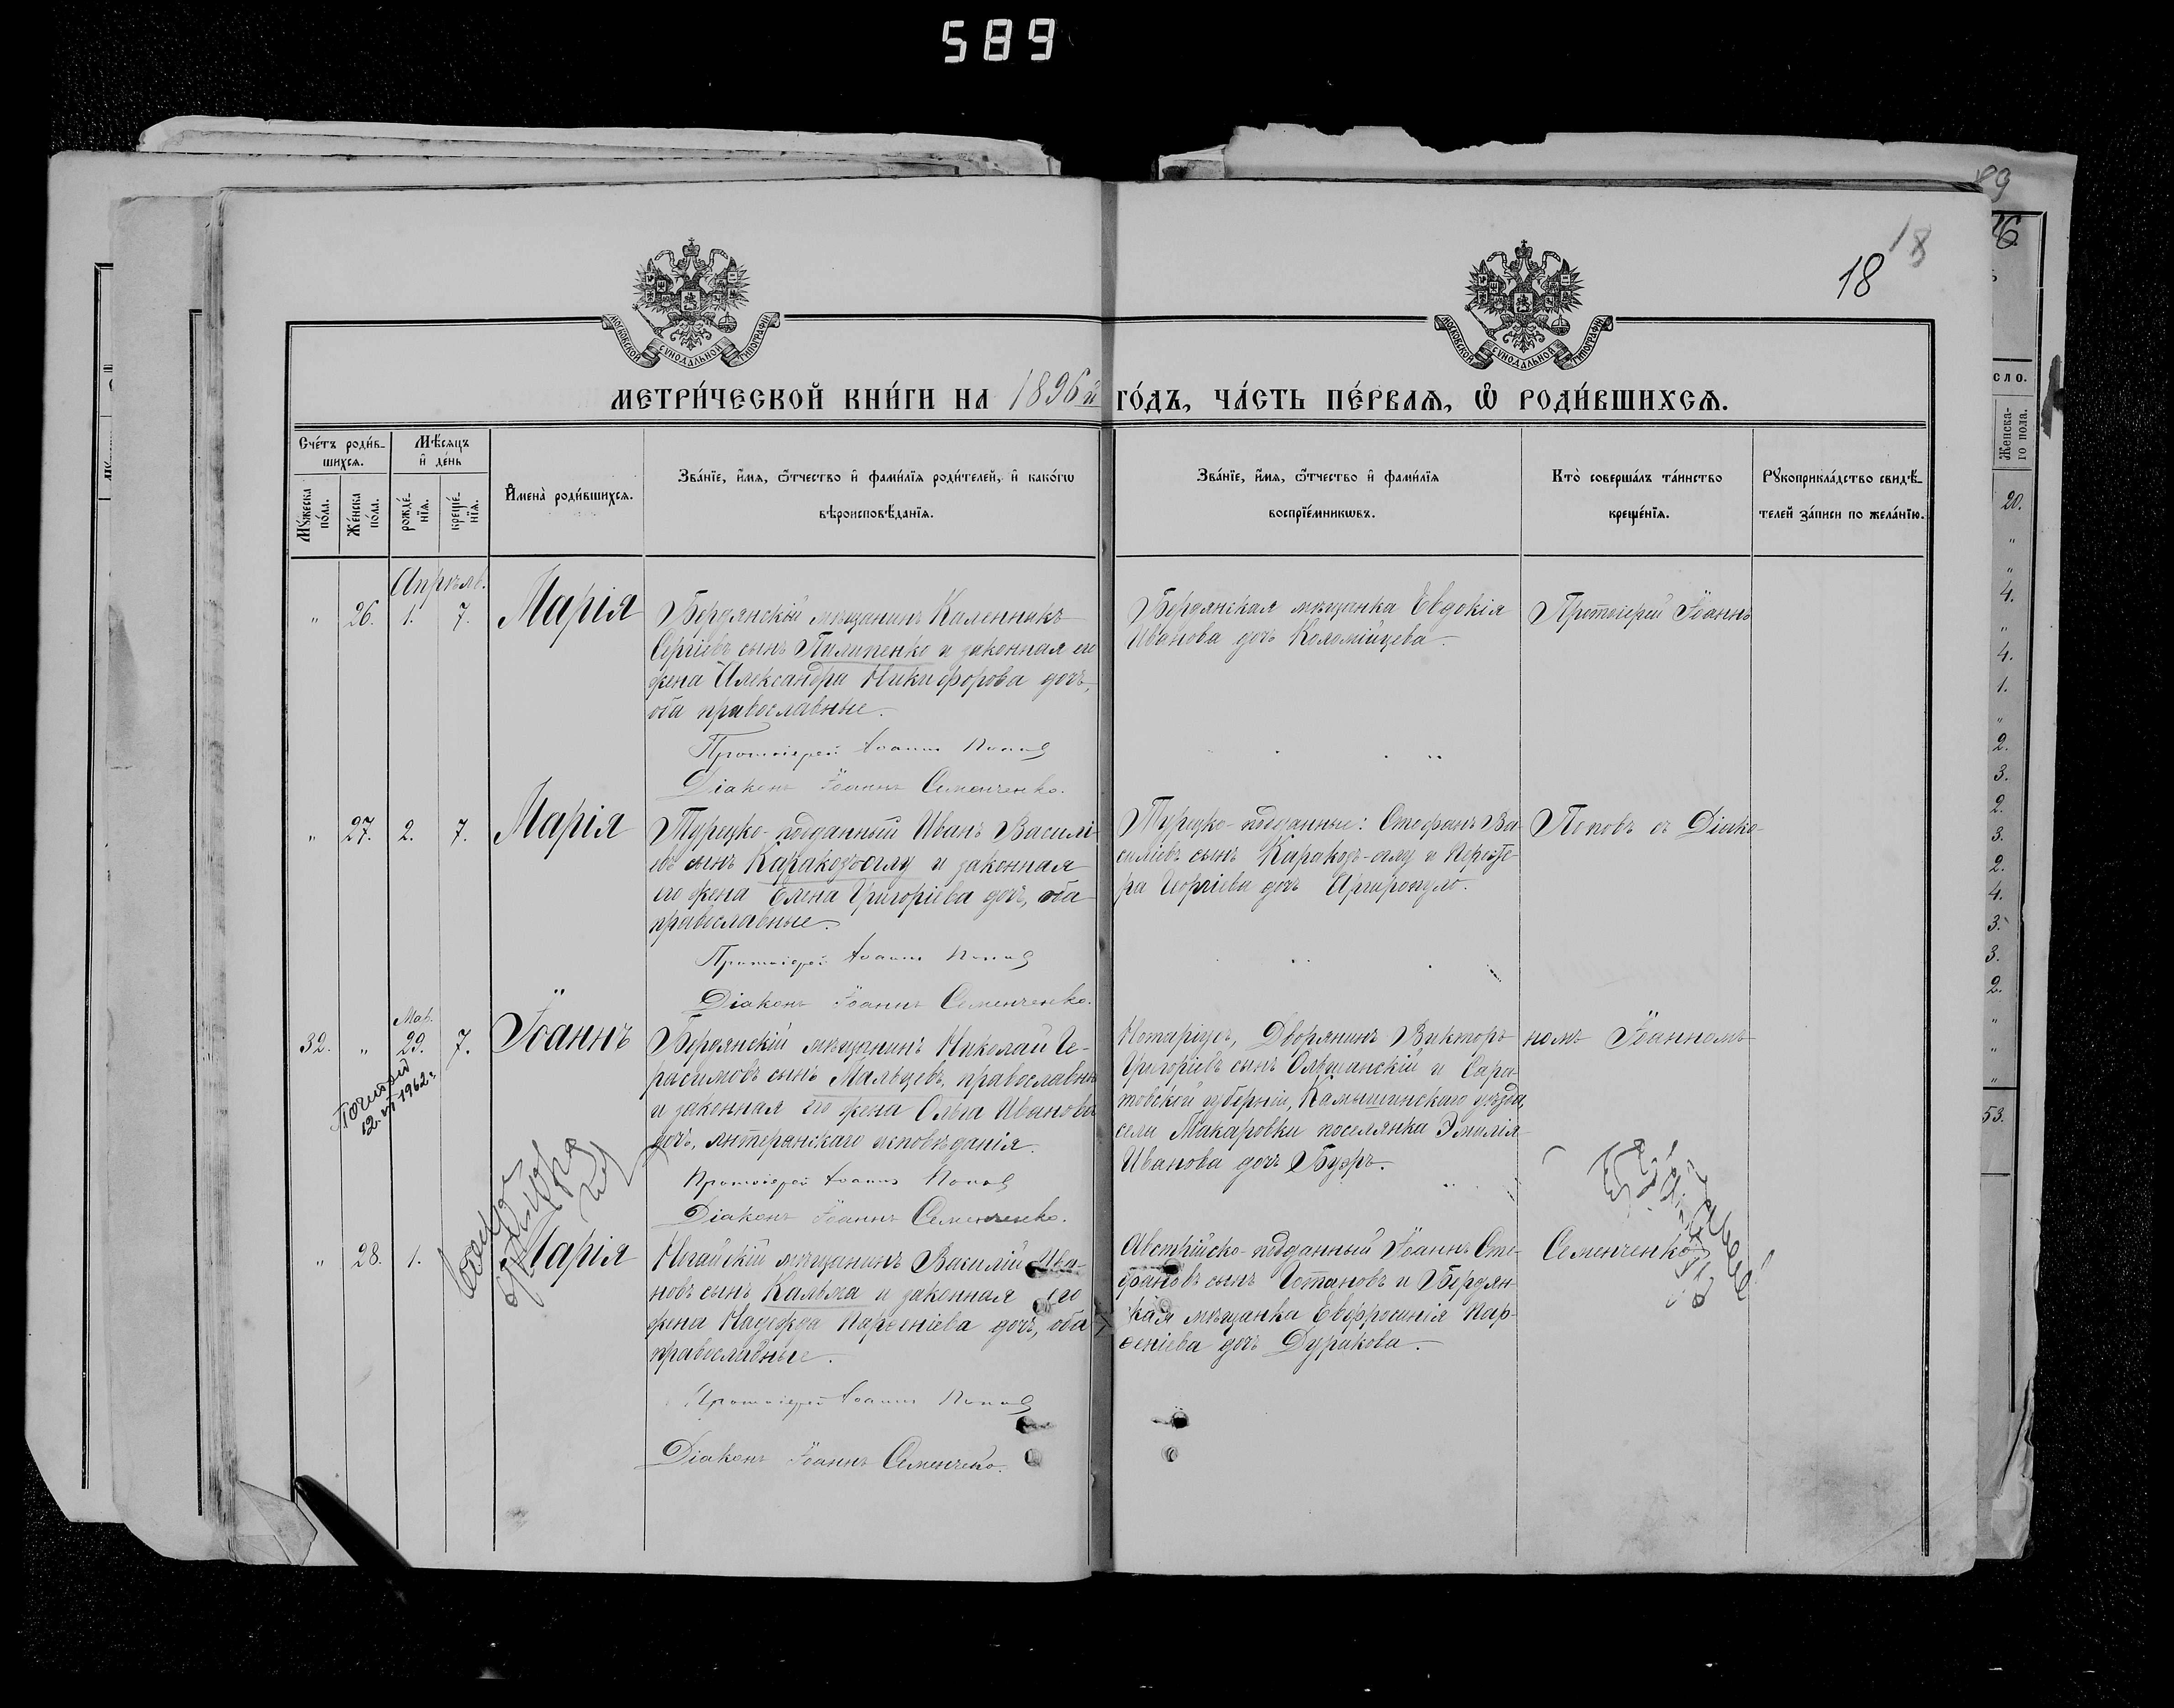 589
89
18
18
МОСКОВСКОЙ СѴНОДАЛЬНОЙ ТИПОГРАФІИ
МОСКОВСКОЙ СѴНОДАЛЬНОЙ ТИПОГРАФІИ
МЕТРИ́ЧЕСКОЙ КНИ́ГИ НА 1896й ГО́ДЪ, ЧА́СТЬ ПЕ́РВАѦ, Ѡ҆ РОДИ́ВШИХСѦ.
Сче́тъ роди́в-
шихсѧ.
Мѣ́сѧцъ
и҆ де́нь
Мꙋ́жеска
по́ла.
Же́нска
по́ла.
рожде́-
нїѧ.
креще́-
нїѧ.
И҆мена̀ роди́вшихсѧ.
Зва́нїе, и҆́мѧ, ѻ҆́тчество и҆ фами́лїѧ роди́телей, и҆ како́гѡ
вѣроисповѣ́данїѧ.
Зва́нїе, и҆́мѧ, ѻ҆́тчество и҆ фами́лїѧ
воспрїе́мникѡвъ.
Кто̀ соверша́лъ та́инство
креще́нїѧ.
Рꙋкоприкла́дство свидѣ́-
телей за́писи по жела́нїю.
Апрѣль.
" 26. 1. 7. Марія
Бердянскій мѣщанинъ Каленникъ
Сергіевъ сынъ Пилипенко и законная его
жена Александра Никифорова дочь,
оба православные.
Протоіерей Іоаннъ Поповъ
Діаконъ Іоаннъ Семенченко.
Бердянская мѣщанка Евдокія
Иванова дочь Коломійцева.
Протоіерей Іоаннъ
" 27. 2. 7. Марія
Турецко-подданный Иванъ Василі-
евъ сынъ Каракозъ-оглу и законная
его жена Елена Григоріева дочь, оба
православные.
Протоіерей Іоаннъ Поповъ
Діаконъ Іоаннъ Семенченко.
Турецко-подданные: Стефанъ Ва-
силіевъ сынъ Каракозъ-оглу и
Георгіева дочь Аргиропуло.
Поповъ съ Діако-
Мар.
32. " 29. 7. Іоаннъ
Бердянскій мѣщанинъ Николай Ге-
расимовъ сынъ Мальцевъ, православный
и законная его жена Ольга Иванова
дочь, лютеранскаго исповѣданія.
Протоіерей Іоаннъ Поповъ
Діаконъ Іоаннъ Семенченко.
Нотаріусъ, Дворянинъ Викторъ
Григоріевъ сынъ Ольшанскій и Сара-
товской губерніи, Камышинскаго уѣзда,
села Макаровки поселянка Эмилія
Иванова дочь Бузръ.
номъ Іоанномъ
Повторно
12.VI 1962г.
" 28. 1. Марія
Ногайскій мѣщанинъ Василій Ива-
новъ сынъ Кальма и законная его
жена Надежда Парѳеніева дочь, оба
православные.
Протоіерей Іоаннъ Поповъ
Діаконъ Іоаннъ Семенченко.
Австрійско-подданный Іоаннъ Сте-
фановъ сынъ Готановъ и Бердян-
ская мѣщанка Евфросинія Пар-
ѳеніева дочь Дуракова.
Семенченко
сло.
Женска-
го пола.
20.
"
"
4.
"
4.
1.
"
2.
3.
2.
3.
2.
4.
3.
3.
2.
"
"
"
53.